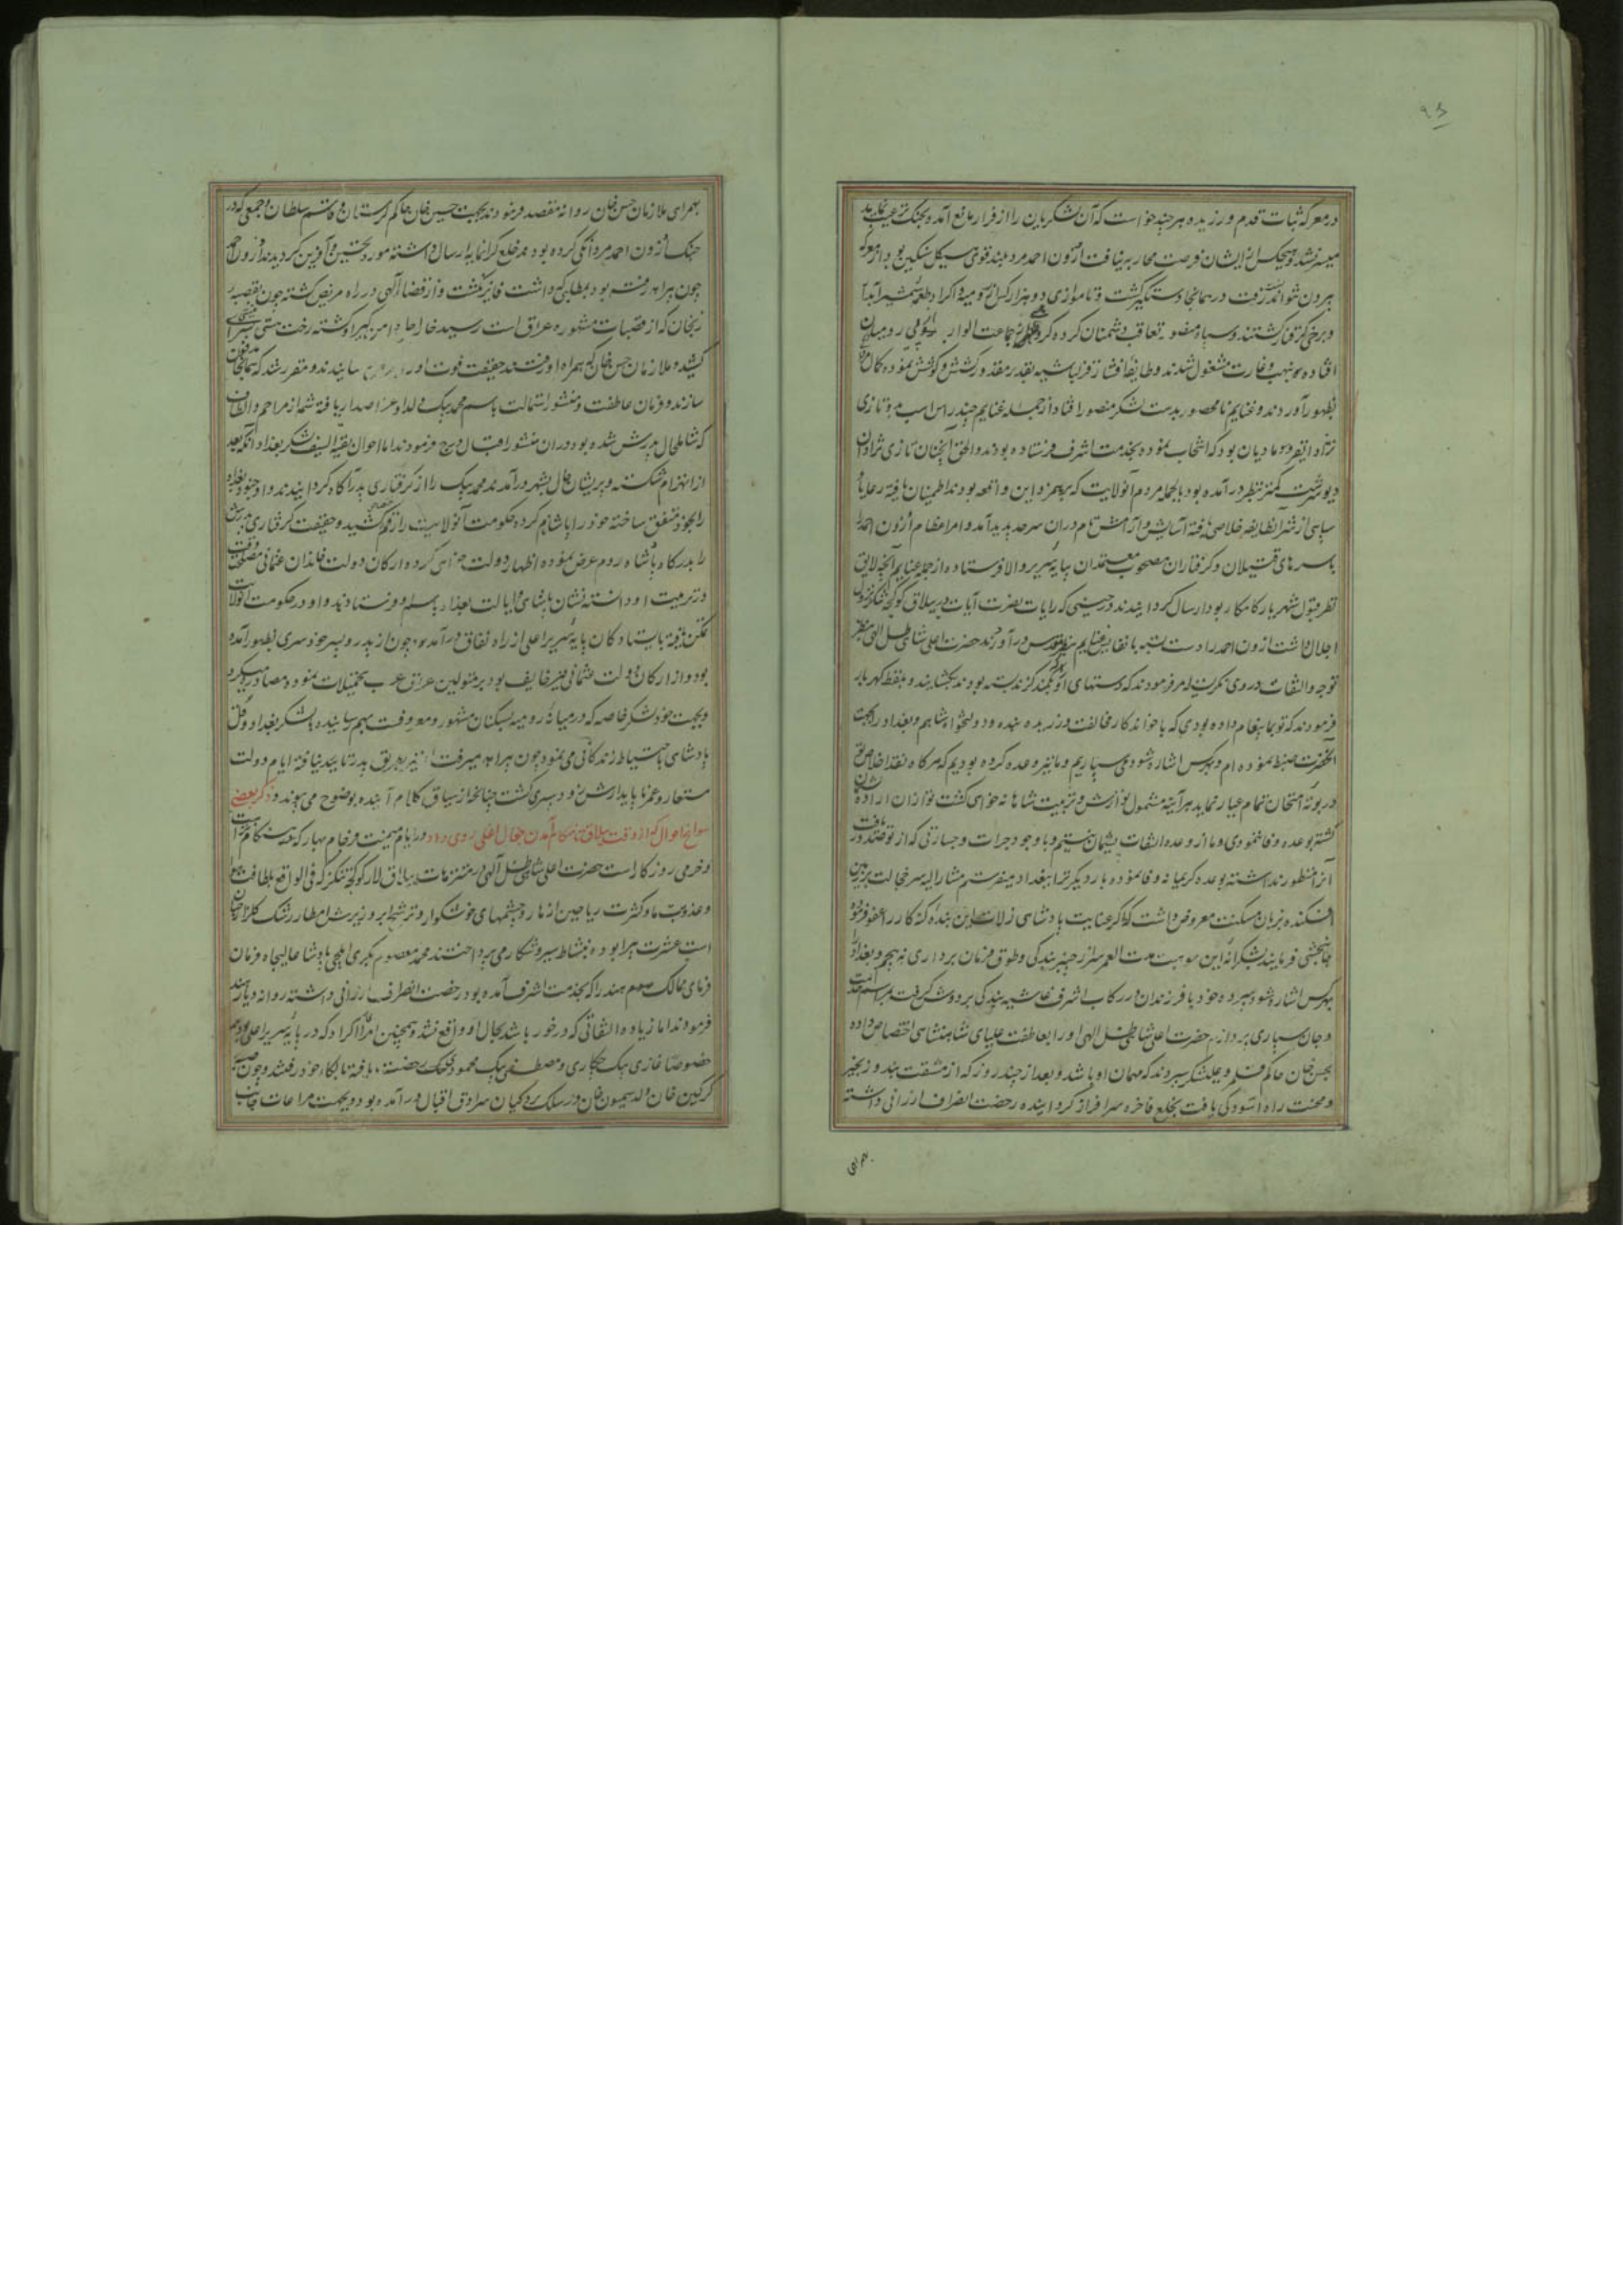 در معرکه ثبات قدم ورزیده هر چند خواست که آن لشکریان را از فرار مانع آمده بجنک ترغیب نماید
میسر نشد و هیچکس از ایشان فرصت محاربه نیافت ازون احمد مرد بلند قوی هیکل سنکین بود از معرکه
بیرون نتوانست رفت در همانجا دستکیر کشت و تا موازی دو هزار کس از رومیه و اکراد طعمه شمشیر آبدار
و برخی کرفتار کشتند و سپاه منصور تعاقب دشمنان کرده جماعت الوار در میان
افتاده به نهب و غارت مشغول شدند و طایفه افشار و قزلباشیه بقدر مقدور کشش و کوشش نموده
بظهور آوردند و غنایم نامحصور بدست لشکر منصور افتاد از جمله غنایم چندر اس اسب بدو تازی
نژاد از نفر و مادیان بود که انتخاب نموده بخدمت اشرف فرستاده بودند و الحق آنچنان تازی نژادان
دیو سرشت کمتر بنظر در آمده بود بالجمله مردم آنولایت که بهم زد این واقعه بودند اطمینان یافته رعایا و
سپاهی از شر آنطایفه خلاصی یافته آسایش و آرامش تمام در آن سرحد پدید آمد و امراء عظام ازون احمد را
با سرهای قتیلان و کرفتاران مصحوب معتمدان بپایه سریر والا فرستاده از جمله غنایم آنچه لایق
نظر قبول شهریار کامکار بود ارسال کردانیدند در حینی که رایات نصرت آیات در ییلاق کوکجه تنکز نزول
اجلال داشت ازون احمد را دست بسته با نفایس غنایم بنظر اقدس در آوردند حضرت اعلی شاهی ظل الهی بنظر
توجه و التفات در وی نکریسته امر فرمودند که دستهای او که بکمند کزند بسته بودند بکشایند و بلفظ کهربار
فرمودند که تو بما پیغام داده بودی که با خواندکار مخالفت ورزیده بنده و دولتخواه شاهم و بغداد را بجهت
آنحضرت ضبط نموده ام و بهر کس اشاره شود می سپاریم و ما نیز وعده کرده بودیم که هرکاه نقد اخلاص تو
در بوته امتحان تمام عیار نماید هر آینه مشمول نوازش و تربیت شاهانه خواهی کشت تو از آن اراده پشیمان
کشته بوعده وفا ننمودی و ما از وعده التفات پشیمان نیستیم و با وجود جرات و جسارتی که از تو صدور یافت
آنرا منظور نداشته بوعده کریمانه وفا نموده بار دیکر ترا ببغداد میفرستیم مشارالیه سر خجالت بر زمین
افکنده بزبان مسکنت معروض داشت که اکر عنایت پادشاهی زلات این بنده کنه کار را عفو فرموده
جانبخشی فرمایند بشکرانه این موهبت مدت العمر سر از چنبر بندکی و طوق فرمان برداری نه پیچم و بغداد را
بهر کس اشاره شود سپرده خود با فرزندان در رکاب اشرف غاشیه بندکی بر دوش کرفته
و جان سپاری پردازم حضرت اعلی شاهی ظل الهی او را بعاطفت علیای شاهنشاهی اختصاص داده
بحسن خان حاکم قلمرو علیشکر سپردند که مهمان او باشد و بعد از چند روز که از مشقت بند و زنجیر
و محنت راه آسودکی یافت بخلع فاخره سرافراز کردانیده رخصت انصراف ارزانی داشته
بهمراهی
بهمراهی ملازمان حسن خان روانه مقصد فرمودند و بجهت حسین خان حاکم لرستان و قاسم سلطان و جمعی که در
جنک ازون احمد مردانکی کرده بودند خلع کرانمایه ارسال داشته مورد تحسین و آفرین کردیدند و ازون احمد
چون براه رفته بود بمطلبی که داشت فایز نکشت و از قضاء آلهی در راه مریض کشته چون بقصبه
زنجان که از قصبات مشهوره عراق است رسید خار اجل دامن کیر او کشته رخت هستی
کشید و ملازمان حسن خان که همراه او رفتند حقیقت فوت او را رسانیدند و مقرر شد که همانجا مدفون
سازند و فرمان عاطفت و منشور استمالت باسم محمد بیک ولد او عز اصدار یافته شمه از مراحم و الطاف
که شامل حال پدرش شده بود در آن منشور اقبال درج فرمودند اما احوال بقیة السیف لشکر بغداد آنکه بعد
از انهزام شکسته و پریشان حال بشهر در آمدند محمد بیک را از کرفتاری پدر آکاه کردانیدند و او جنود بغداد
را بخود متفق ساخته خود را پاشا نام کرده حکومت آنولایت را از قوم کشید و حقیقت کرفتاری پدرش
را بدرکاه پادشاه روم عرض نموده اظهار دولت خواهی کرد ارکان دولت خاندان عثمانی مصلحت وقت
در تربیت او دانسته نشان پاشائی و ایالت بغداد باسم او فرستادند و او در حکومت آنولایت
تمکن یافته با ایستادکان پایه سریر اعلی از راه نفاق در آمد و چون از پدر و پسر خود سری بظهور آمده
بود و از ارکان دولت عثمانی نیز خایف بود بر متمولین عراق عرب تحمیلات نموده مصادره میکرد
و بجهت خود لشکر خاصه که در میانه رومیه بسکبان مشهور و معروفست بهم رسانیده با لشکر بغداد و قول
پادشاهی باحتیاط زندکانی می نمود چون براه میرفت او نیز بطریق پدر تایید نیافته ایام دولت
مستعار و عمر ناپایدارش زود بسری کشت چنانچه از سیاق کلام آینده بوضوح می پیوندد ذکر بعضی
سوانح احوال که در وقت ییلاق تا هنکام آمدن روی داد در ایام میمنت فرجام بهار که هنکام
و خرمی روزکار است حضرت اعلی شاهی ظل آلهی در متنزهات ییلاق لار کوکجه تنکز که فی الواقع بلطافت هوا
و عذوبت ما و کثرت ریاحین و ازهار و چشمهای خوشکوار و ترشح ابر و ریزش امطار رشک کلزار
است عشرت پیرا بوده بنشاط سیر و شکار می پرداختند محمد معصوم بکری ایلچی پادشاه عالیجاه فرمان
فرمای ممالک هند را که بخدمت اشرف آمده بود رخصت انصراف ارزانی داشته روانه دیار هند
فرمودند اما زیاده التفاتی که در خور باشد بحال او واقع نشد و همچنین امراء اکراد که در پایه سریر اعلی بودند
خصوصا غازی بیک حکاری و مصطفی بیک محمودی رخصت یافته بالکاء خود رفتند و چون
کرکین خان ولد سیمون خان در سلک بردکیان سرادق اقبال در آمده بود و بجهت مراعات جانب